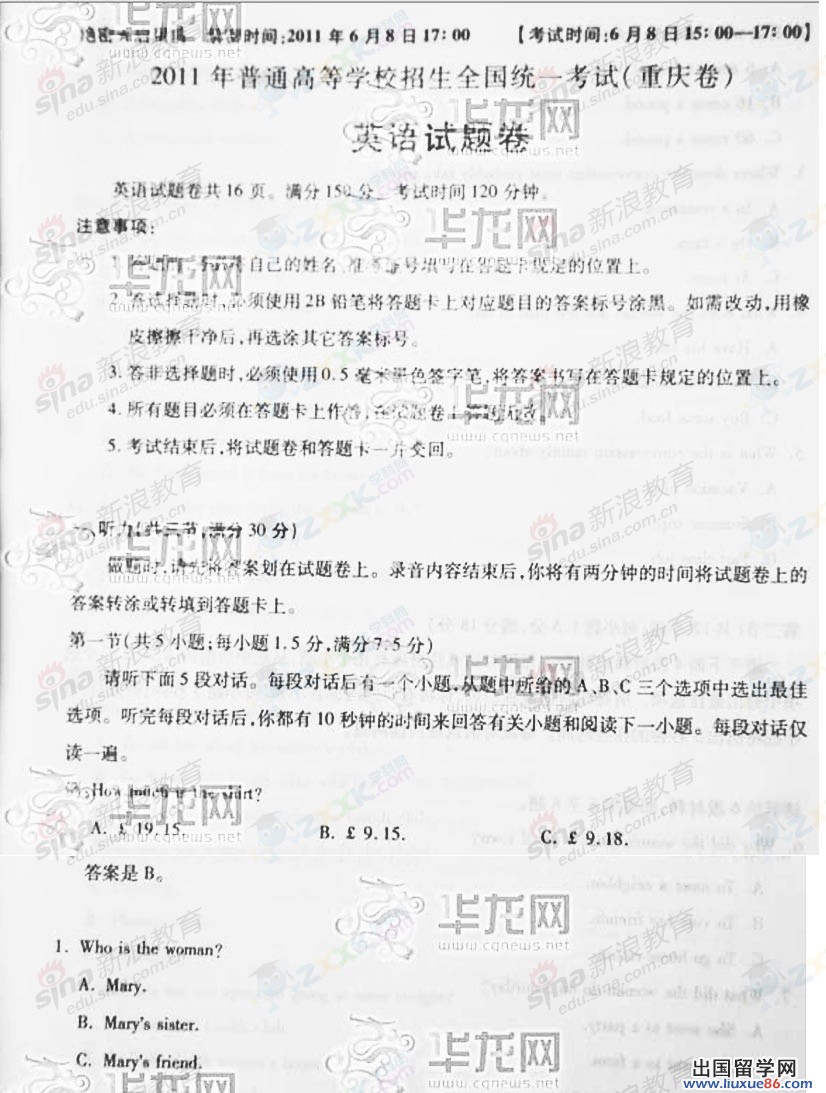 时间:2011年6月8日17:00 【考试时间:6月8日15:00—17:00】
2011年普通高等学校招生全国统一考试(重庆卷)
英语试题卷
英语试题卷共16页。满分150分。考试时间120分钟。
注意事项:
自己的姓名、准考证号填写在答题卡规定的位置上。
2.答选择题时,必须使用2B铅笔将答题卡上对应题目的答案标号涂黑。如需改动,用橡
皮擦擦干净后,再选涂其它答案标号。
3.答非选择题时,必须使用0.5毫米黑色签字笔,将答案书写在答题卡规定的位置上。
4.所有题目必须在答题卡上作答,在试题卷上答题无效。
5.考试结束后,将试题卷和答题卡一并交回。
一、听力(共三节,满分30分)
做题时,请先将答案划在试题卷上。录音内容结束后,你将有两分钟的时间将试题卷上的
答案转涂或转填到答题卡上。
第一节(共5小题;每小题1.5分,满分7.5分)
请听下面5段对话。每段对话后有一个小题,从题中所给的A、B、C三个选项中选出最佳
选项。听完每段对话后,你都有10秒钟的时间来回答有关小题和阅读下一小题。每段对话仅
读一遍。
例:How much is the shirt?
A. £ 19.15. B. £ 9.15. C. £ 9.18.
答案是B。
1. Who is the woman?
A. Mary.
B. Mary's sister.
C. Mary's friend.
华龙网
www.cqnews.net
sina新浪教育
edu.sina.com.cn
学科网
ZXXK.com
出国留学网
www.liuxue86.com